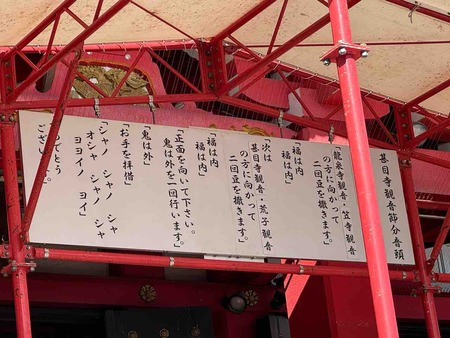 甚目寺観音節分音頭
「龍泉寺観音・笠寺観音
の方に向かって
二回豆を撒きます。
福は内
福は内」
「次は
甚目寺観音・荒子観音
の方に向かって
二回豆を撒きます。
「福は内
福は内」
「正面を向いて下さい。
鬼は外を一回行います。」
「鬼は外」
「お手を拝借」
「シャノ シャノ シャ
オシャ シャノ シャ
ヨヨイノ ヨイ」